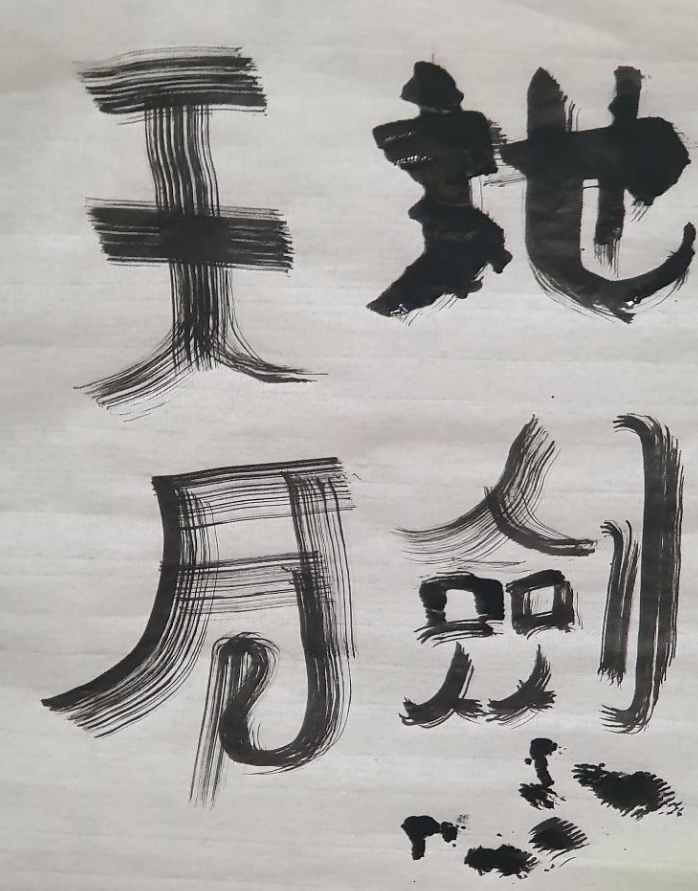 天地
月劍